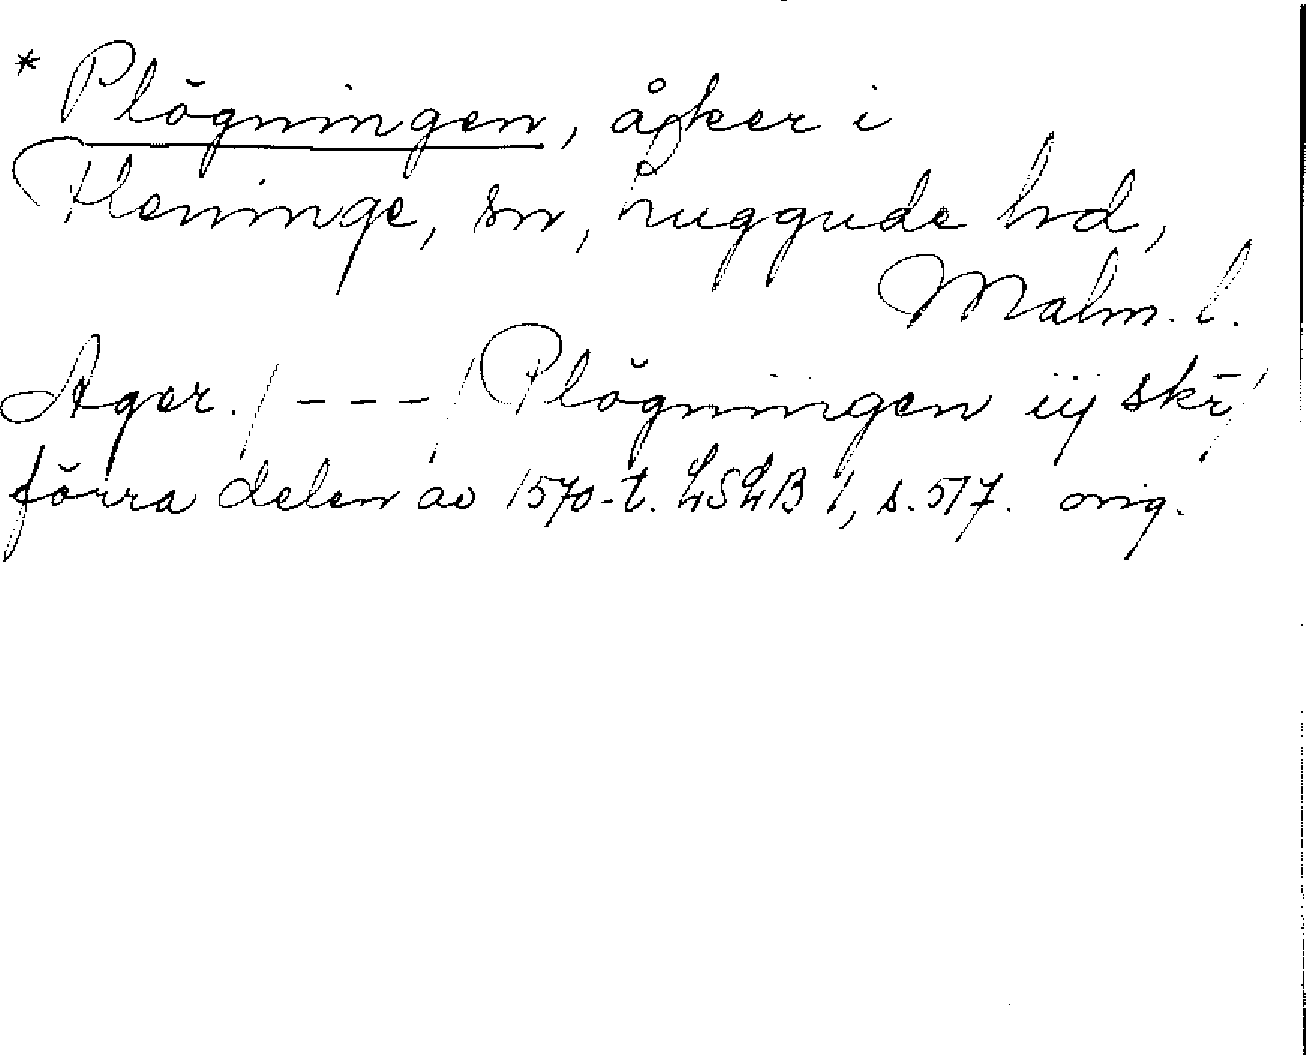 * Plögningen, åker i
Fleninge, sn, Luggude hd,
Malm. l.
Ager. /---/ Plögningen iij skr̄/
förra delen av 1570-t. LSLB 1, s. 517. orig.